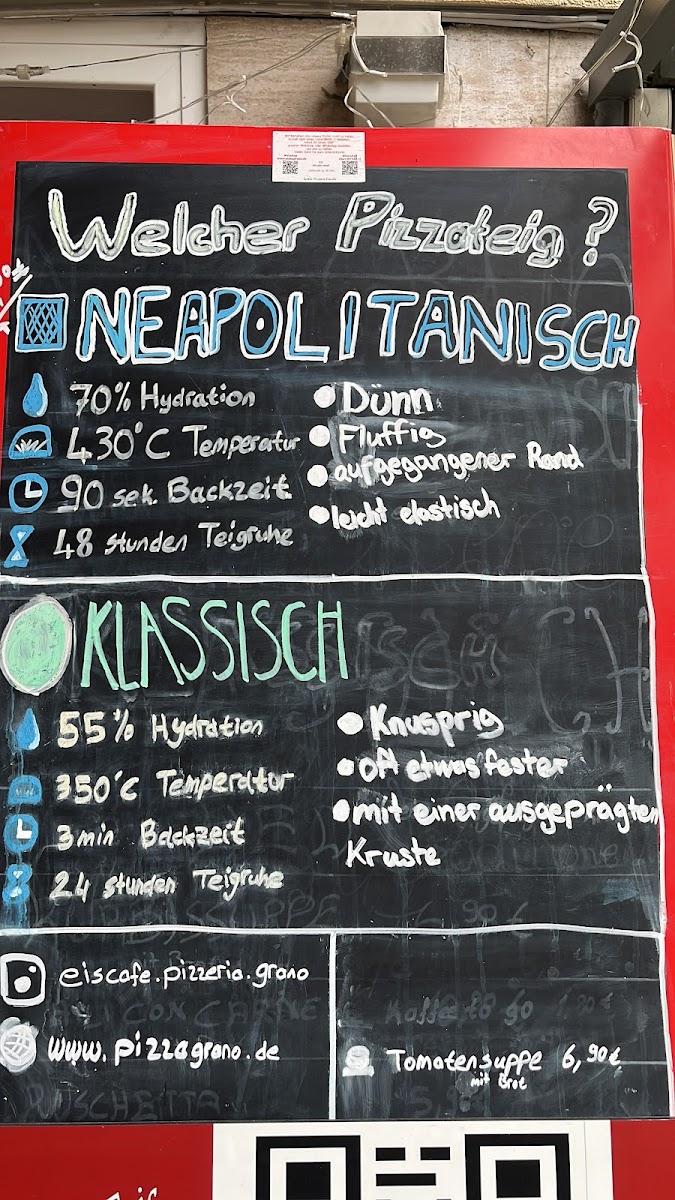 Welcher Pizzateig?
NEAPOLITANISCH
70% Hydration
430°C Temperatur
90 sek. Backzeit
48 stunden Teigruhe
• Dünn
• Fluffig
• aufgegangener Rand
• leicht elastisch
KLASSISCH
55% Hydration
350°C Temperatur
3min Backzeit
24 stunden Teigruhe
• Knusprig
• oft etwas fester
• mit einer ausgeprägten
Kruste
eiscafe.pizzeria.grano
www.pizzagrano.de
Tomatensuppe 6,90€
mit Brot